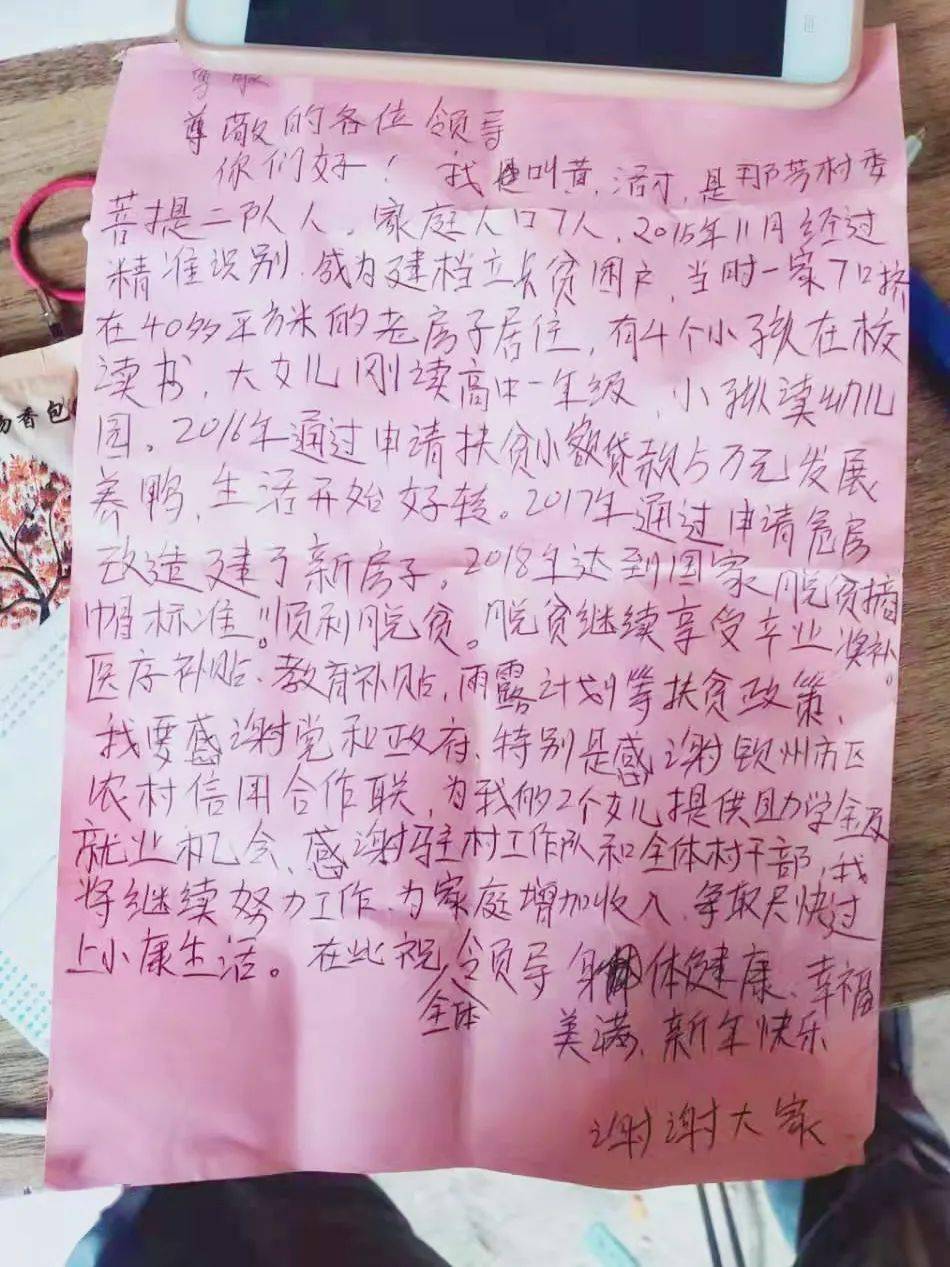 尊敬
尊敬的各位领导
你们好！我叫黄活才,是那芳村委
菩提二队人。家庭人口7人,2015年11月经过
精准识别,成为建档立卡贫困户,当时一家7口挤
在40多平方米的老房子居住,有4个小孩在校
读书,大女儿刚读高中一年级,小孩读幼儿
园。2016年通过申请扶贫小额贷款5万元发展
养鸭,生活开始好转。2017年通过申请危房
改造建了新房子。2018年达到国家脱贫摘
帽标准。顺利脱贫。脱贫继续享受产业奖补。
医疗补贴、教育补贴,雨露计划等扶贫政策,
我要感谢党和政府、特别是感谢钦州市区
农村信用合作联,为我的2个女儿提供助学金及
就业机会、感谢驻村工作队和全体村干部,我
将继续努力工作,为家庭增加收入,争取尽快过
上小康生活。在此祝全体领导身体健康、幸福
美满、新年快乐
谢谢大家
香包